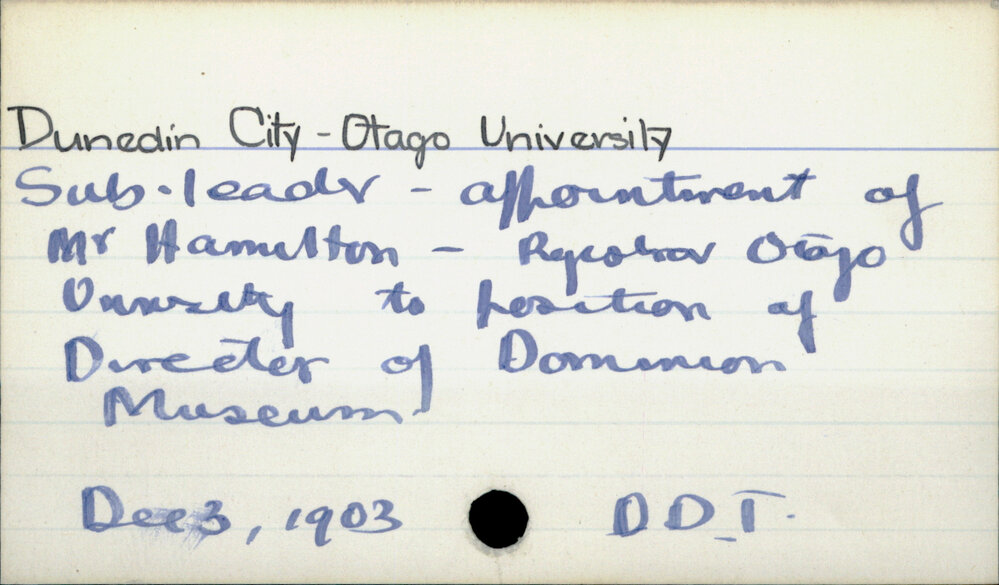 Dunedin City - Otago University
Sub-leader - appointment of
Mr Hamilton - Registrar Otago
University to position of
Director of Dominion
Museum
Dec 3, 1903 D D_T.